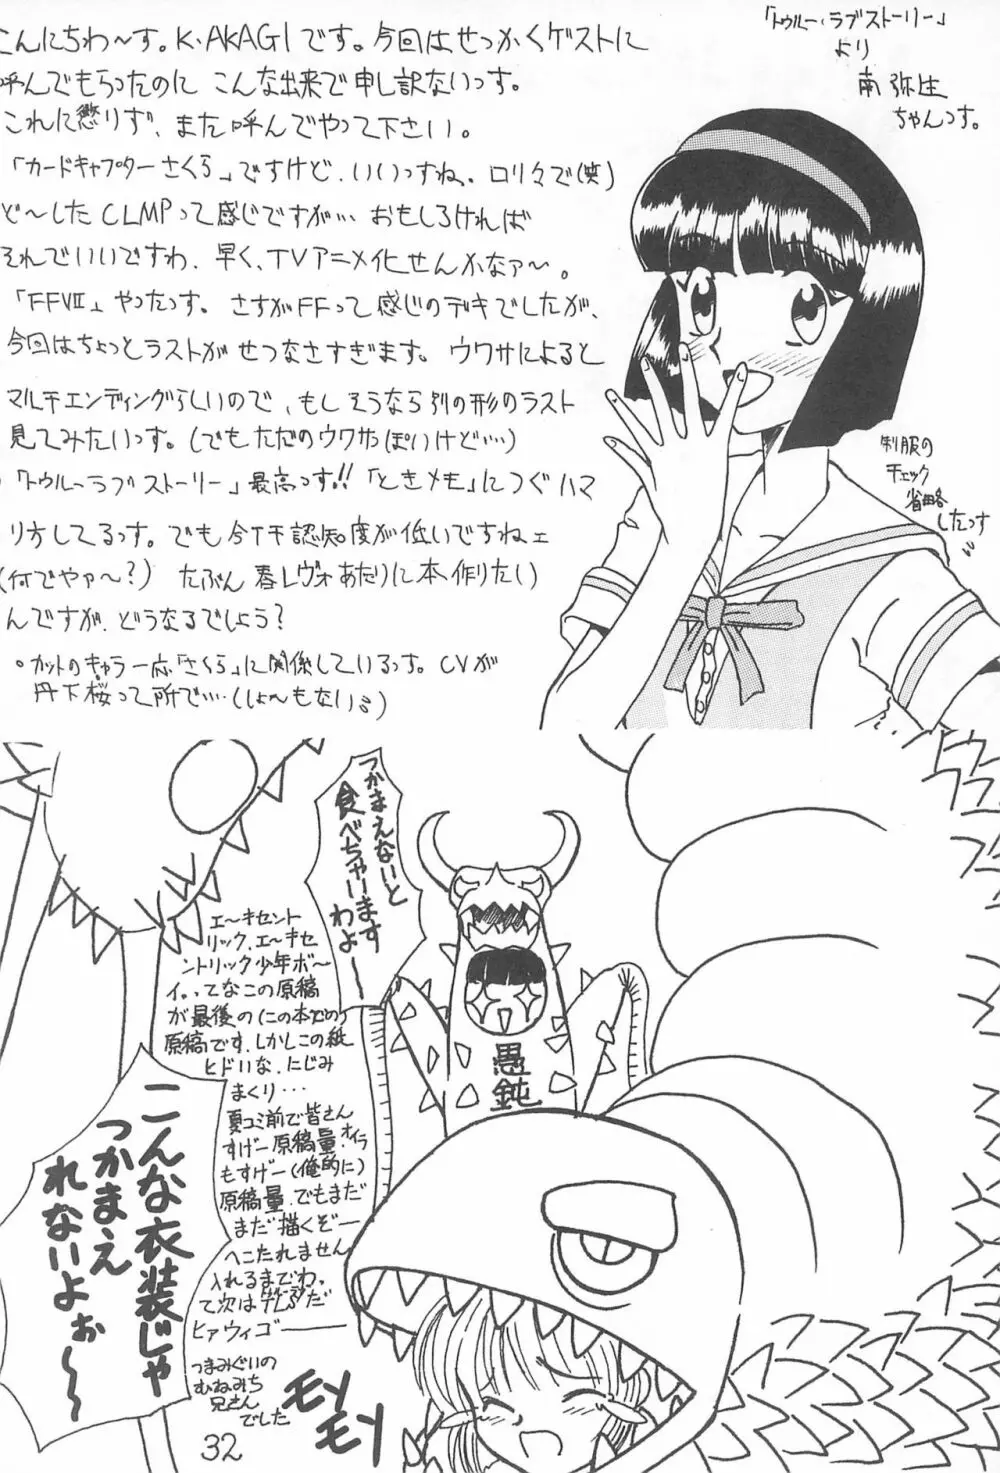 こんにちわ〜す。K・AKAGIです。今回はせっかくゲストに
呼んでもらったのに こんな出来で申し訳ないっす。
これに懲りず、また呼んでやって下さい。
「カードキャプターさくら」ですけど、いいっすね、ロリ々で(笑)
ど〜した CLMPって感じですが… おもしろければ
それでいいですわ、早く、TVアニメ化せんかなァ〜。
「FFⅦ」やったっす。さすがFFって感じのデキでしたが、
今回はちょっとラストがせつなさすぎます。ウワサによると
マルチエンディングらしいので、もしそうなら別の形のラスト
見てみたいっす。(でもただのウワサっぽいけど…)
「トゥルーラブストーリー」最高っす!!「ときメモ」につぐハマ
リ方してるっす。でも今イチ認知度が低いですねェ
(何でやァ〜?) たぶん春レヴォあたりに本作りたい
んですが、どうなるでしょう?
・カットのキャラ一応「さくら」に関係しているっす。CVが
丹下桜って所で…(しょ〜もない)
「トゥルー・ラブストーリー」
より
南 弥生
ちゃんっす。
制服の
チェック
省略
したっす
つかまえないと
食べちゃいます
わよ〜
エ〜キセント
リック、エ〜キセ
ントリック少年ボ〜
イ。ってなこの原稿
が最後の(この本での)
原稿です、しかしこの紙
ヒドいな、にじみ
まくり…
夏コミ前で皆さん
すげー原稿量、オイラ
もすげー(俺的に)
原稿量、でもまだ
まだ描くぞー
へこたれません
入れるまでわ。
て次は だ
ヒァウィゴー
つまみぐいの
むねみち
兄さん
でした
こんな衣装じゃ
つかまえ
れないよぉ〜
愚鈍
モソ
モソ
32